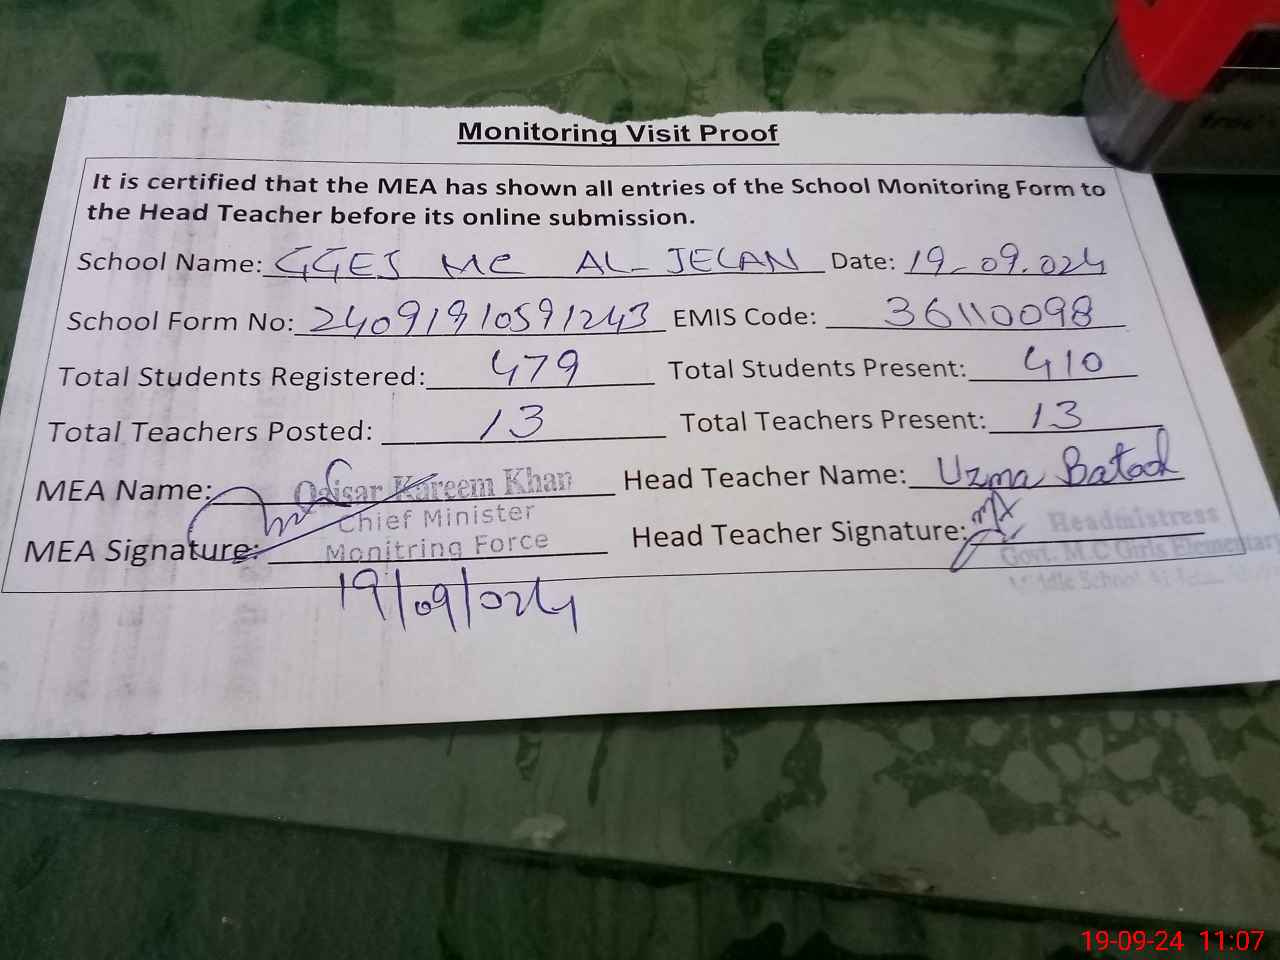 Monitoring Visit Proof
It is certified that the MEA has shown all entries of the School Monitoring Form to
the Head Teacher before its online submission.
School Name: GGES MC AL-JELAN Date: 19-09.024
School Form No: 24091910591243 EMIS Code: 36110098
Total Students Registered: 479 Total Students Present: 410
Total Teachers Posted: 13 Total Teachers Present: 13
MEA Name: Qaisar Kareem Khan Head Teacher Name: Uzma Batool
Chief Minister
MEA Signature: Monitring Force Head Teacher Signature: Headmistress
Govt. M.C Girls Elementary
Middle School
19/09/024
19-09-24 11:07